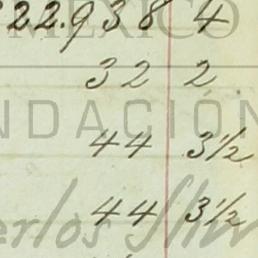 MEXICO
22.938 4
32 2
NDACIÓN
44 3½
44 3½
erlos Slim